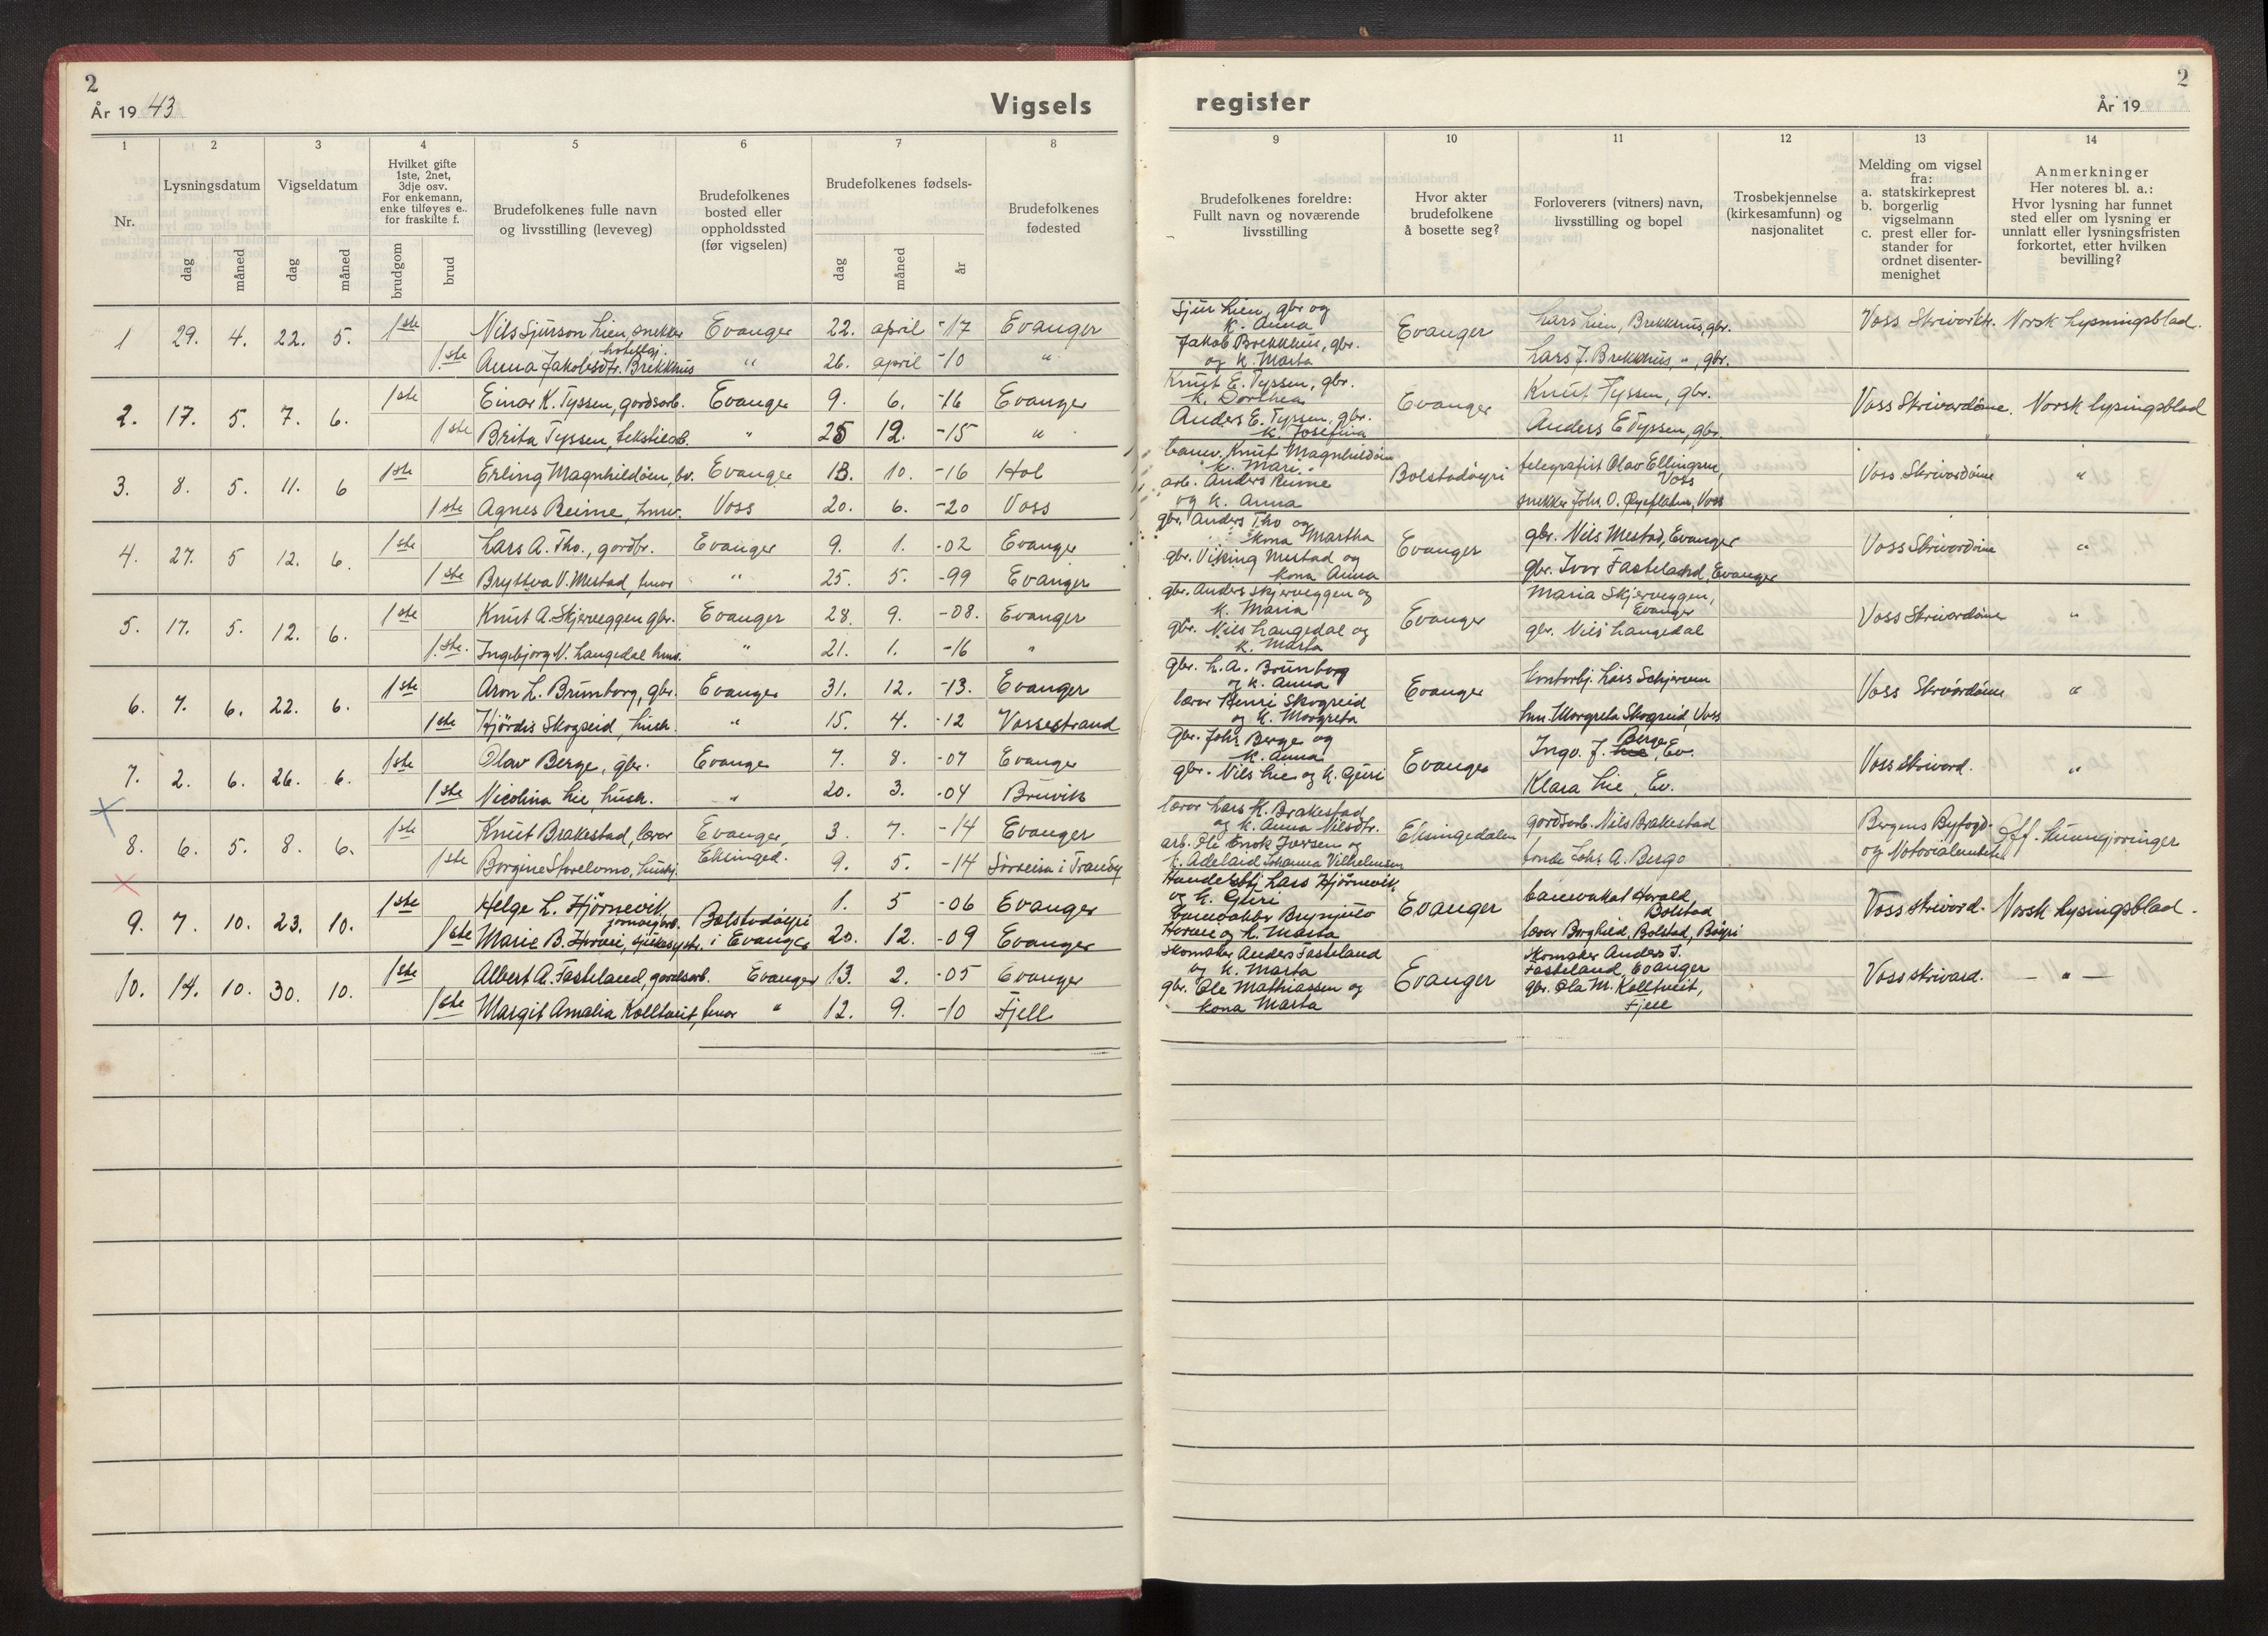 2
År 19 43
Vigsels
register
År 19
2
1
2
3
4
5
6
7
8
9
10
11
12
13
14
Nr.
Lysningsdatum
dag
måned
Vigseldatum
dag
måned
Hvilket gifte
1ste, 2net,
3dje osv.
For enkemann,
enke tilføyes e..
for fraskilte f.
brudgom
brud
Brudefolkenes fulle navn
og livsstilling (levevEg)
Brudefolkenes
bosted eller
oppholdssted
(før vigselen)
Brudefolkenes fødsels-
dag
måned
år
Brudefolkenes
fødested
Brudefolkenes foreldre:
Fullt navn og nuværende
livsstilling
Hvor akter
brudefolkene
å bosette seg?
Forloverers (vitners) navn,
livsstilling og bopel
Trosbekjennelse
(kirkesamfunn) og
nasjonalitet
Melding om vigsel
fra:
a. statskirkeprest
b. borgerlig
vigselmann
c. prest eller for-
stander for
ordnet disenter-
menighet
Anmerkninger
Her noteres bl. a.:
Hvor lysning har funnet
sted eller om lysning er
unnlatt eller lysningsfristen
forkortet, etter hvilken
bevilling?
1 29. 4. 22. 5. 1ste Nils Sjurson Lien, snekker Evanger 22. april -17 Evanger
1ste Anna Jakobsdtr. Brekkhus " 26. april -10 "
Sjur Lien, gbr og
k. Anna
Jakob Brekkhus, gbr.
og k. Marta
Evanger
Lars Lien, Brekkhus, gbr.
Lars J. Brekkhus, " , gbr.
Voss Skrivorkt. Norsk Lysningsblad.
2. 17. 5. 7. 6. 1ste Einar K. Tyssen, gordsarb. Evanger 9. 6. -16 Evanger
1ste Brita Tyssen, tekstilarb. " 25 12. -15 "
Knut E. Tyssen, gbr.
k. Dorthea
Anders E. Tyssen, gbr.
k. Josefina
Evanger
Knut Tyssen, gbr.
Anders E Tyssen, gbr.
Voss Skrivardöme. Norsk lysingsblad
3. 8. 5. 11. 6 1ste Erling Magnhildöen, bv. Evanger 13. 10. -16 Hol
1ste Agnes Reime, hmv. Voss 20. 6. -20 Voss
banev. Knut Magnhildöen
k. Mari.
arb. Anders Reime
og k. Anna
Bolstadöyri
telegrafist Olav Ellingsen,
Voss
snekker Johs. O. Øyeflaten, Voss
Voss Skrivardöme "
4. 27. 5 12. 6. 1ste Lars A. Tho., gordbr. Evanger 9. 1. -02 Evanger
1ste Bryttva V. Mestad, heimv " 25. 5. -99 Evanger
gbr. Anders Tho og
kona Martha
gbr. Viking Mestad og
kona Anna
Evanger
gbr. Nils Mestad, Evanger
gbr. Ivar Fasteland, Evanger
Voss Skrivardöme "
5. 17. 5. 12. 6. 1ste Knut A. Skjerveggen gbr. Evanger 28. 9. -08. Evanger
1ste. Ingebjorg N. Langedal hmv. " 21. 1. -16 "
gbr. Anders Skjerveggen og
k. Maria
gbr. Nils Langedal og
k. Marta
Evanger
Maria Skjerveggen,
Evanger
gbr. Nils Langedal
Voss Skrivardöme "
6. 7. 6. 22. 6. 1ste Aron L. Brunborg, gbr. Evanger 31. 12. -13. Evanger
1ste Hjördis Skogseid, hush. " 15. 4. -12 Vossestrand
gbr. L. A. Brunborg
og k. Anna
lærer Henri Skogseid
og k. Margreta
Evanger
kontorbj. Lars Schjerven
hm. Margreta Skogseid, Voss
Voss Skrivardöme "
7. 2. 6. 26. 6. 1ste Olav Berge, gbr. Evanger 7. 8. -07 Evanger
1ste Nicolina Lie, hush. " 20. 3. -04 Bruvik
gbr. Johs Berge og
k. Anna
gbr. Nils Lie og k. Guri
Evanger
Ingv. J. Lie Berge, Ev.
Klara Lie, Ev.
Voss skrivard. "
8. 6. 5. 8. 6. 1ste Knut Brakestad, lærer Evanger, 3. 7. -14 Evanger
1ste Borgine Storelomo, hushj. Eksinged. 9. 5. -14 Sörreisa i Tranöy
lærer Lars K. Brakestad
og k. Anna Nilsdtr.
arb. Ole Enok Iversen og
k. Adelaid Johanna Vilhelmsen
Eksingedalen
gordsarb. Nils Brakestad
fonde Johs A. Bergo
Bergens Byfogd-
og Notorialembete Off. kunngjöringer
9. 7. 10. 23. 10. 1ste Helge L. Hjörnevik, jernvarb. Bolstadöyri 1. 5 -06 Evanger
1ste Marie B. Horvei, sjukesystr. i Evanger 20. 12. -09 Evanger
Handelsbtj Lars Hjörnevik
og k. Guri
banevakter Brynjulv
Horvei og k. Marta
Evanger
banevakt Harald
Bolstad
lærer Borghild, Bolstad, Böyri
Voss skrivard. Norsk Lysingsblad.
10. 14. 10. 30. 10. 1ste Albert A. Fasteland, gardsarb. Evanger 13. 2. -05 Evanger
1ste Margit Amalia Kolltveit, heimv " 12. 9. -10 Fjell
skomaker Anders Fasteland
og k. Marta
gbr. Ole Mathiassen og
kona Marta
Evanger
Skomaker Anders J.
Fasteland, Evanger
gbr. Ola M. Kolltveit,
Fjell
Voss skrivard. — " —